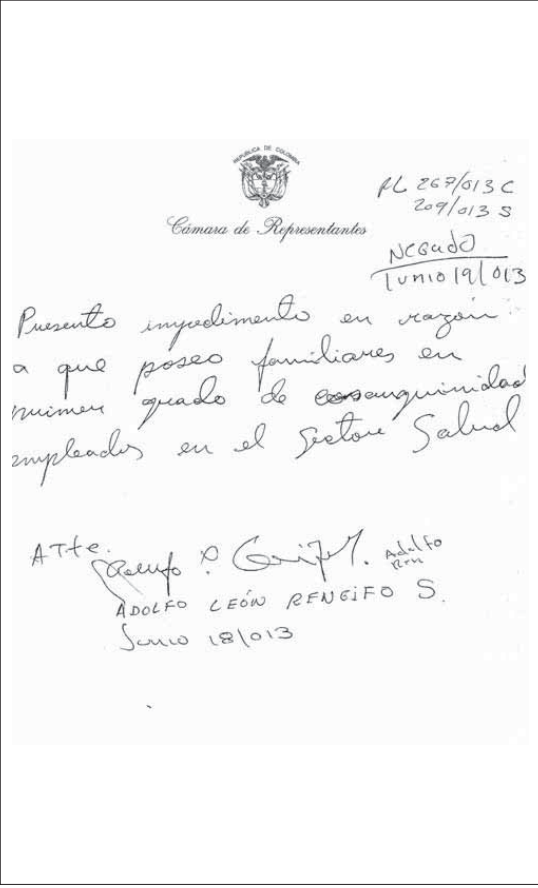 REPUBLICA DE COLOMBIA
Cámara de Representantes
PL 267/013 C
209/013 S
NEGADO
JUNIO 19/013
Presento impedimento en razón
a que poseo familiares en
primer grado de consanguinidad
empleados en el Sector Salud
ATte.
Adolfo
ADOLFO LEÓN RENGIFO S.
Junio 18/013